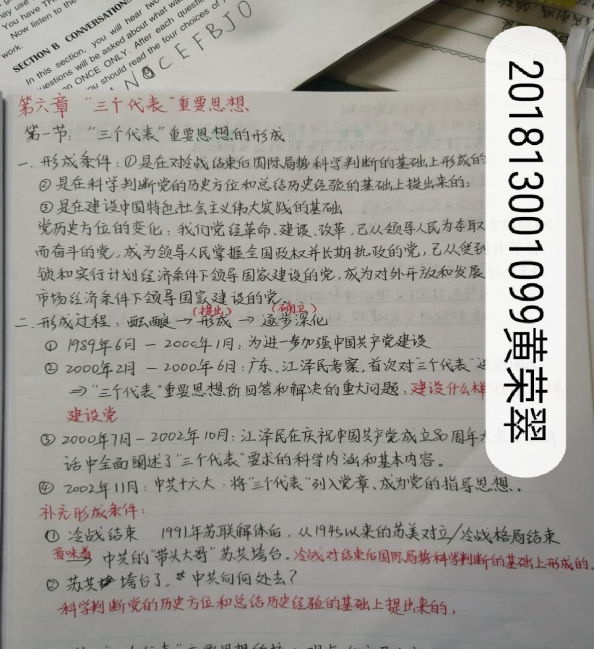 may use
You have TH
Now listen to the
work.
SECTION B CONVERSATION
In this section, you will hear two
questions will be asked about what was
ONCE ONLY. After each question
should read the four choices of
NOCEFBJO
201813001099黄荣翠
第六章 "三个代表"重要思想
第一节:"三个代表"重要思想的形成
一、形成条件:①是在对冷战结束后国际局势科学判断的基础上形成的
②是在科学判断党的历史方位和总结历史经验的基础上提出来的;
③是在建设中国特色社会主义伟大实践的基础
党历史方位的变化:我们党经革命、建设、改革,已从领导人民为夺取
而奋斗的党,成为领导人民掌握全国政权并长期执政的党,已从受到
锁和实行计划经济条件下领导国家建设的党,成为对外开放和发展
市场经济条件下领导国家建设的党。
(提出) (确立)
二、形成过程:酝酿→形成→逐步深化
① 1989年6月-2000年1月:为进一步加强中国共产党建设
② 2000年2月-2000年6月:广东、江泽民考察,首次对"三个代表"
⇒"三个代表"重要思想所回答和解决的重大问题:建设什么样的
建设党
③ 2000年7月-2002年10月:江泽民在庆祝中国共产党成立80周年大会
话中全面阐述了"三个代表"要求的科学内涵和基本内容。
④ 2002年11月:中共十六大:将"三个代表"列入党章、成为党的指导思想。
补充形成条件:
① 冷战结束 1991年苏联解体后,从1945以来的苏美对立/冷战格局结束
意味着 中共的"带头大哥"苏共垮台。冷战对结束后国际局势科学判断的基础上形成的.
② 苏共垮台了,中共向何处去?
科学判断党的历史方位和总结历史经验的基础上提出来的,